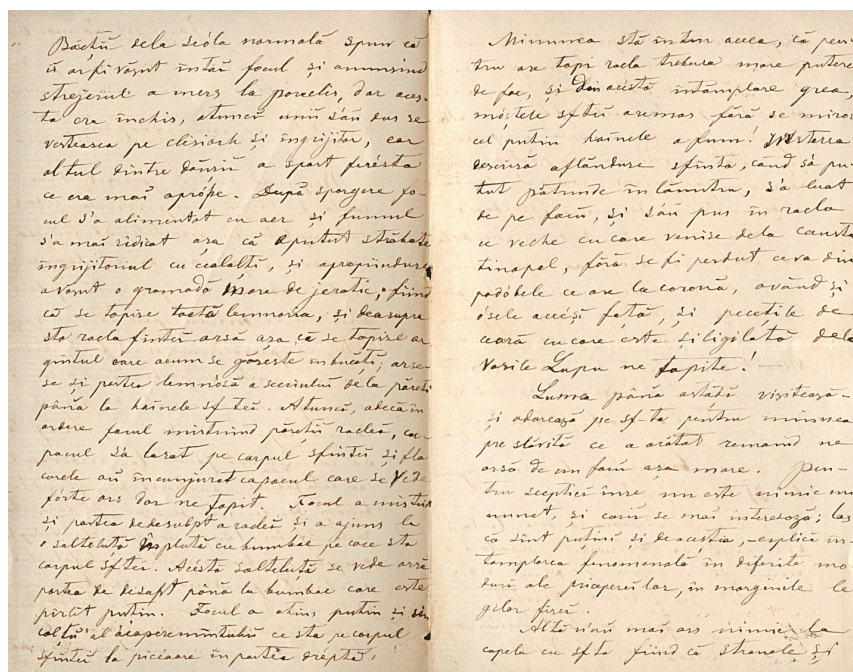 Băeții dela scóla normală spun că
ei ar fi văzut întăi focul și anunsind
strejerul a mers la poartă, dar aces-
ta era închis, atunci unii sau dus se
vestească pe clisiarh și îngrijitor, ear
altul dintre dânșii a spart ferésta
ce era mai aprópe. După spargere fo-
cul s'a alimentat cu aer și fumul
s'a mai ridicat așa că aputut străbate
îngrijitoriul cu cealalți, și apropiinduse
avezut o gramadă mare de jeratic, fiind
că se topise toată lemnăria, și deasupra
sta racla sfintei arsă așa că se topise ar
gintul care acum se găsește in bucăți, arse-
se și partea lemnósă a secriului de la păreți
până la hainele sftei. Atunci, adecă în
ardere focul mistuind păreții raclei, ca-
pacul să lasat pe corpul sfintei și fla
carele au incunjurat capacul care se vede
fórte ars dar ne topit. Focul a mistuit
și partea dedesubt a raclei și a ajuns la
o salteluță împlută cu bumbac pe care sta
corpul sftei. Acésta salteluță se vede arsă
partea de desubt până la bumbac care este
pârlit puțin. Focul a atins puțin și un
colțu al acoperemîntului ce sta pe corpul
sfintei la picioare in partea dréptă.
Minunea stă intru aceea, că pen-
tru ase topi racla trebuia mare putere
de foc, și din acésta întâmplare grea,
móștele sftei aremas fără se miros
cel puțin hainele a fum!
descrisă aflânduse sfinta, cand să pu-
tut pătrunde în lăuntru, s'a luat
de pe focu, și sau pus in racla
cu care venise dela Consta
tinopol, fără se fi perdut ceva din
podóbele ce are la coronă, având și
ósele aceeși față, și pecețile de
ceară cu care este sigilată dela
Vasile Lupu ne topite! —
Lumea până astădi visitează-
și adorează pe sf-ta pentru minunea
pre slăvită ce a arătat remaind ne
arsă de un focu așa mare. Pen-
tru sceptici însе nu este nimic mi
nunat, și care se mai interesază; las
că sint puțini și de aceștia, - explică in-
templarea fenomenală in diferite mo
duri ale priceperei lor, in marginile le
gelor firei.
Altă nau mai ars nimic la
capela cu sfta fiind că stranele și